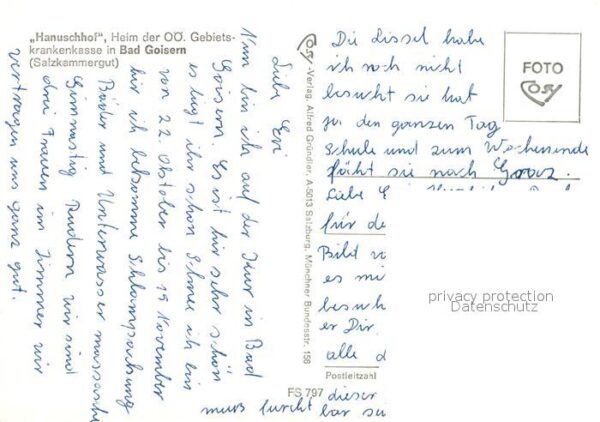 „Hanuschhof", Heim der OÖ. Gebiets-
krankenkasse in Bad Goisern
(Salzkammergut)
Liebe Evi
Nun bin ich auf der Kur in Bad
Goisern. Es ist hir sehr schön
es liegt ihr schon Schnee ich bin
von 22. Oktober bis 19 November
hir ich bekomme Schlampackung
Bäder und Unterwasser massasche
Gimnastig Rudern wir sind
drei Frauen im Zimmer wir
vertragen uns ganz gut.
ÖSV-Verlag, Alfred Gründler, A-5013 Salzburg, Münchner Bundesstr. 156
Die Lissel habe
ich noch nicht
besucht sie hat
ja den ganzen Tag
Schule und zum Wochenende
fährt sie nach Graz.
Liebe
für de
Bild
es mi
besuch
er Dir
alle d
dieser
muss furcht bar se
FOTO
privacy protection
Datenschutz
Postleitzahl
FS 797